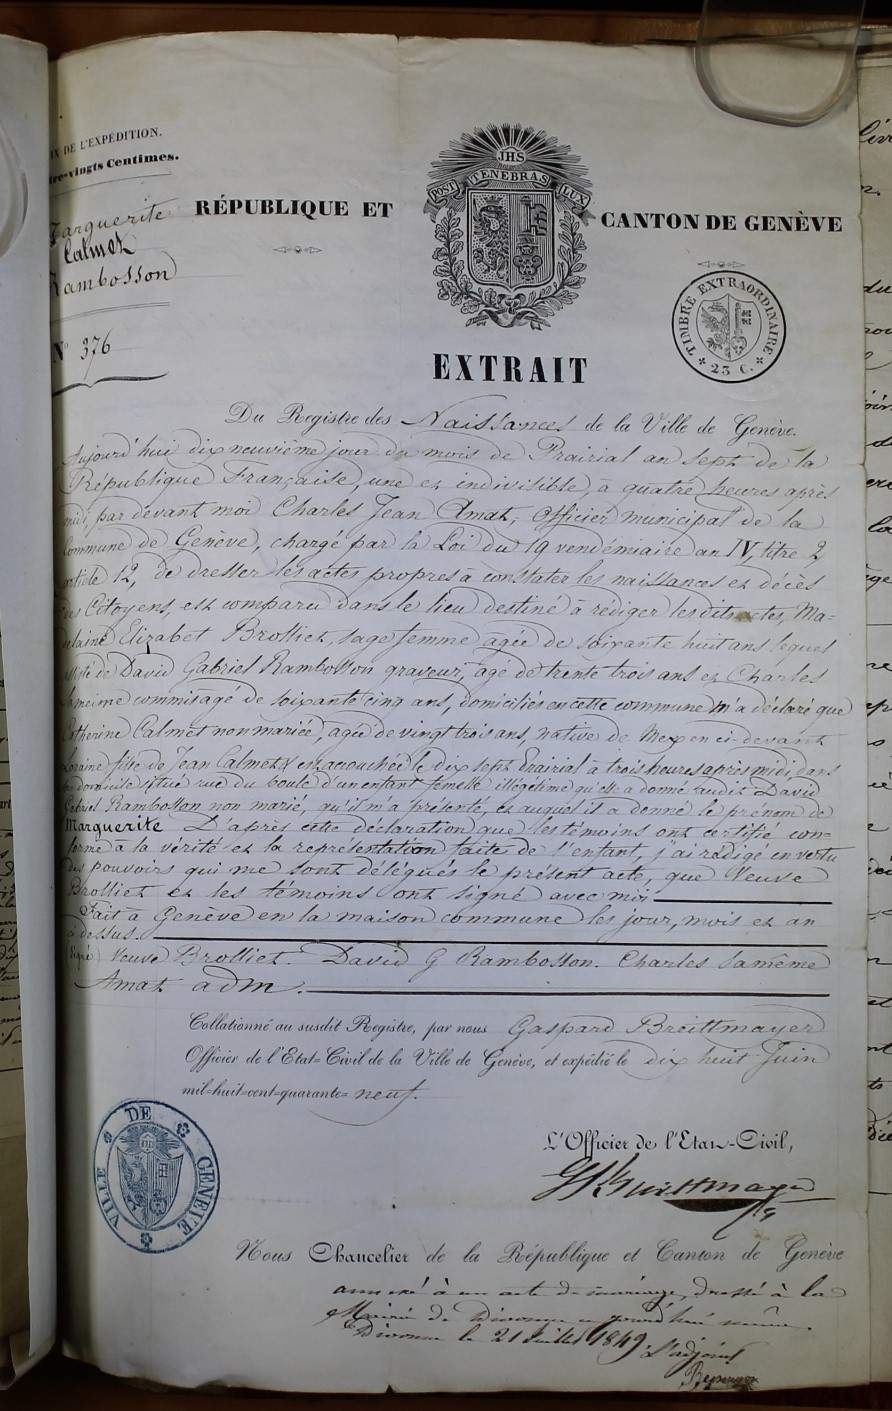 X DE L'EXPÉDITION.
tre-vingts Centimes.
Marguerite
Calmet
Rambosson
N° 376
RÉPUBLIQUE ET CANTON DE GENÈVE
JHS
POST TENEBRAS LUX
TIMBRE EXTRAORDINAIRE
23 C.
EXTRAIT
Du Registre des Naissances de la Ville de Genève.
Aujourd'hui dix neuvième jour du mois de Prairial an sept de la
République Française, une et indivisible, à quatre heures après
midi, par devant moi Charles Jean Amat, Officier municipal de la
Commune de Genève, chargé par la Loi du 19 vendémiaire an IV, titre 2,
article 12, de dresser les actes propres à constater les naissances et décès
des Citoyens, est comparu dans le lieu destiné à rédiger les dits actes, Ma=
delaine Elizabet Brolliet, sage femme agée de soixante huit ans lequel
assisté de David Gabriel Rambosson graveur, agé de trente trois ans et Charles
Lameime commis agé de soixante cinq ans, domiciliés en cette commune m'a déclaré que
Catherine Calmet non mariée, agée de vingt trois ans, native de en ci-devant
Loraine fille de Jean Calmet est accouchée le dix sept Prairial à trois heures après midi, dans
domicile situé rue du boule d'un enfant femelle illégitime qu'elle a donné audit David
Gabriel Rambosson non marié, qu'il m'a présenté, et auquel il a donné le prénom de
Marguerite D'après cette déclaration que les témoins ont certifié con=
forme à la vérité et la représentation faite de l'enfant, j'ai rédigé en vertu
des pouvoirs qui me sont délégués le présent acte, que Veuve
Brolliet et les témoins ont signé avec moi
Fait à Genève en la maison commune les jour, mois et an
ci-dessus.
(Signé) Veuve Brolliet. David G Rambosson. Charles Lamême
Amat adm.
Collationné au susdit Registre, par nous Gaspard Breittmayer
Officier de l'Etat-Civil de la Ville de Genève, et expédié le dix huit Juin
mil-huit-cent-quarante-neuf.
L'Officier de l'Etat-Civil,
G Breittmayer
VILLE DE GENEVE
Nous Chancelier de la République et Canton de Genève
annexé à un acte de mariage, dressé à la
Mairie de Divonne aujourd'hui même.
Divonne le 21 Juillet 1849. L'adjoint